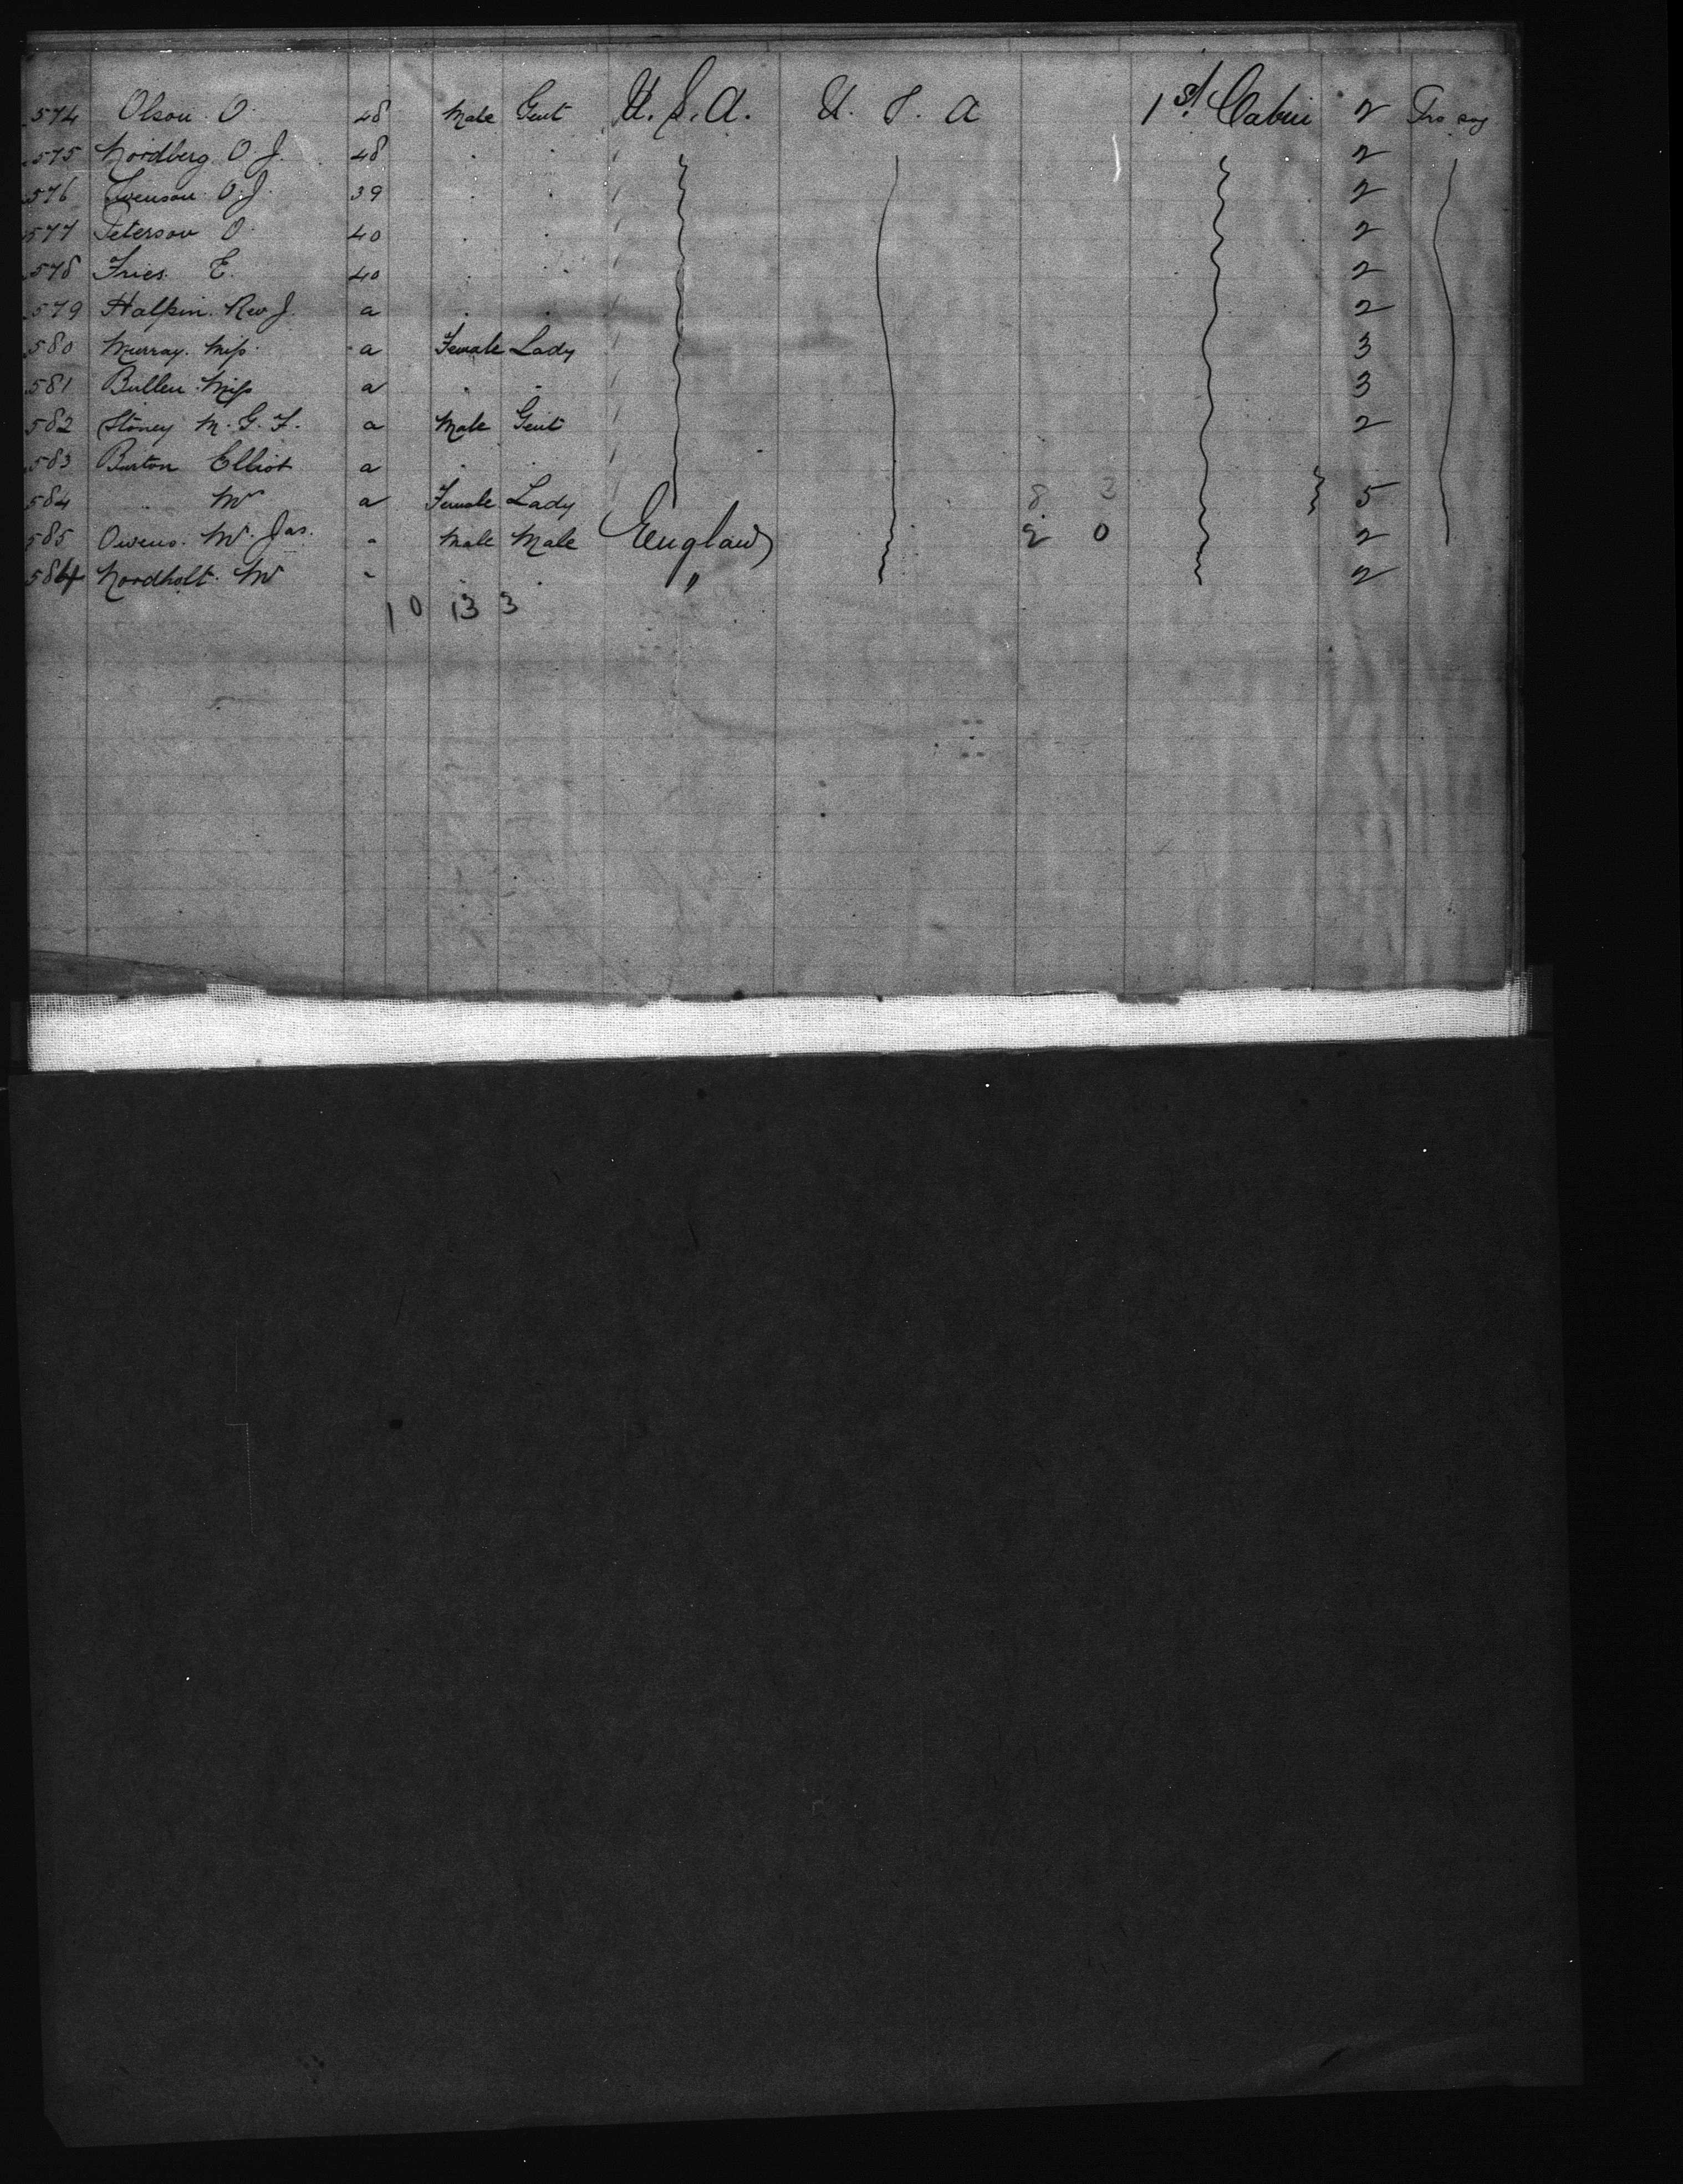 574 Olson. O. 48 Male Gent U.S.A. U. S. A 1st Cabin 2
575 Nordberg O. J. 48 . . 2
576 Swenson O. J. 39 . . 2
577 Peterson O. 40 . . 2
578 Fries. E. 40 . . 2
579 Halpin. Rev J. a . . 2
580 Murray. Miss a Female Lady 3
581 Bullen Miss a . . 3
582 Stoney M. G. F. a Male Gent 2
583 Burton Elliot a . .
584 a Female Lady 8 3 5
585 Owens. Mr. Jas. Male Male England 2 0 2
Nordholt. Mr . . " 2
10 13 3